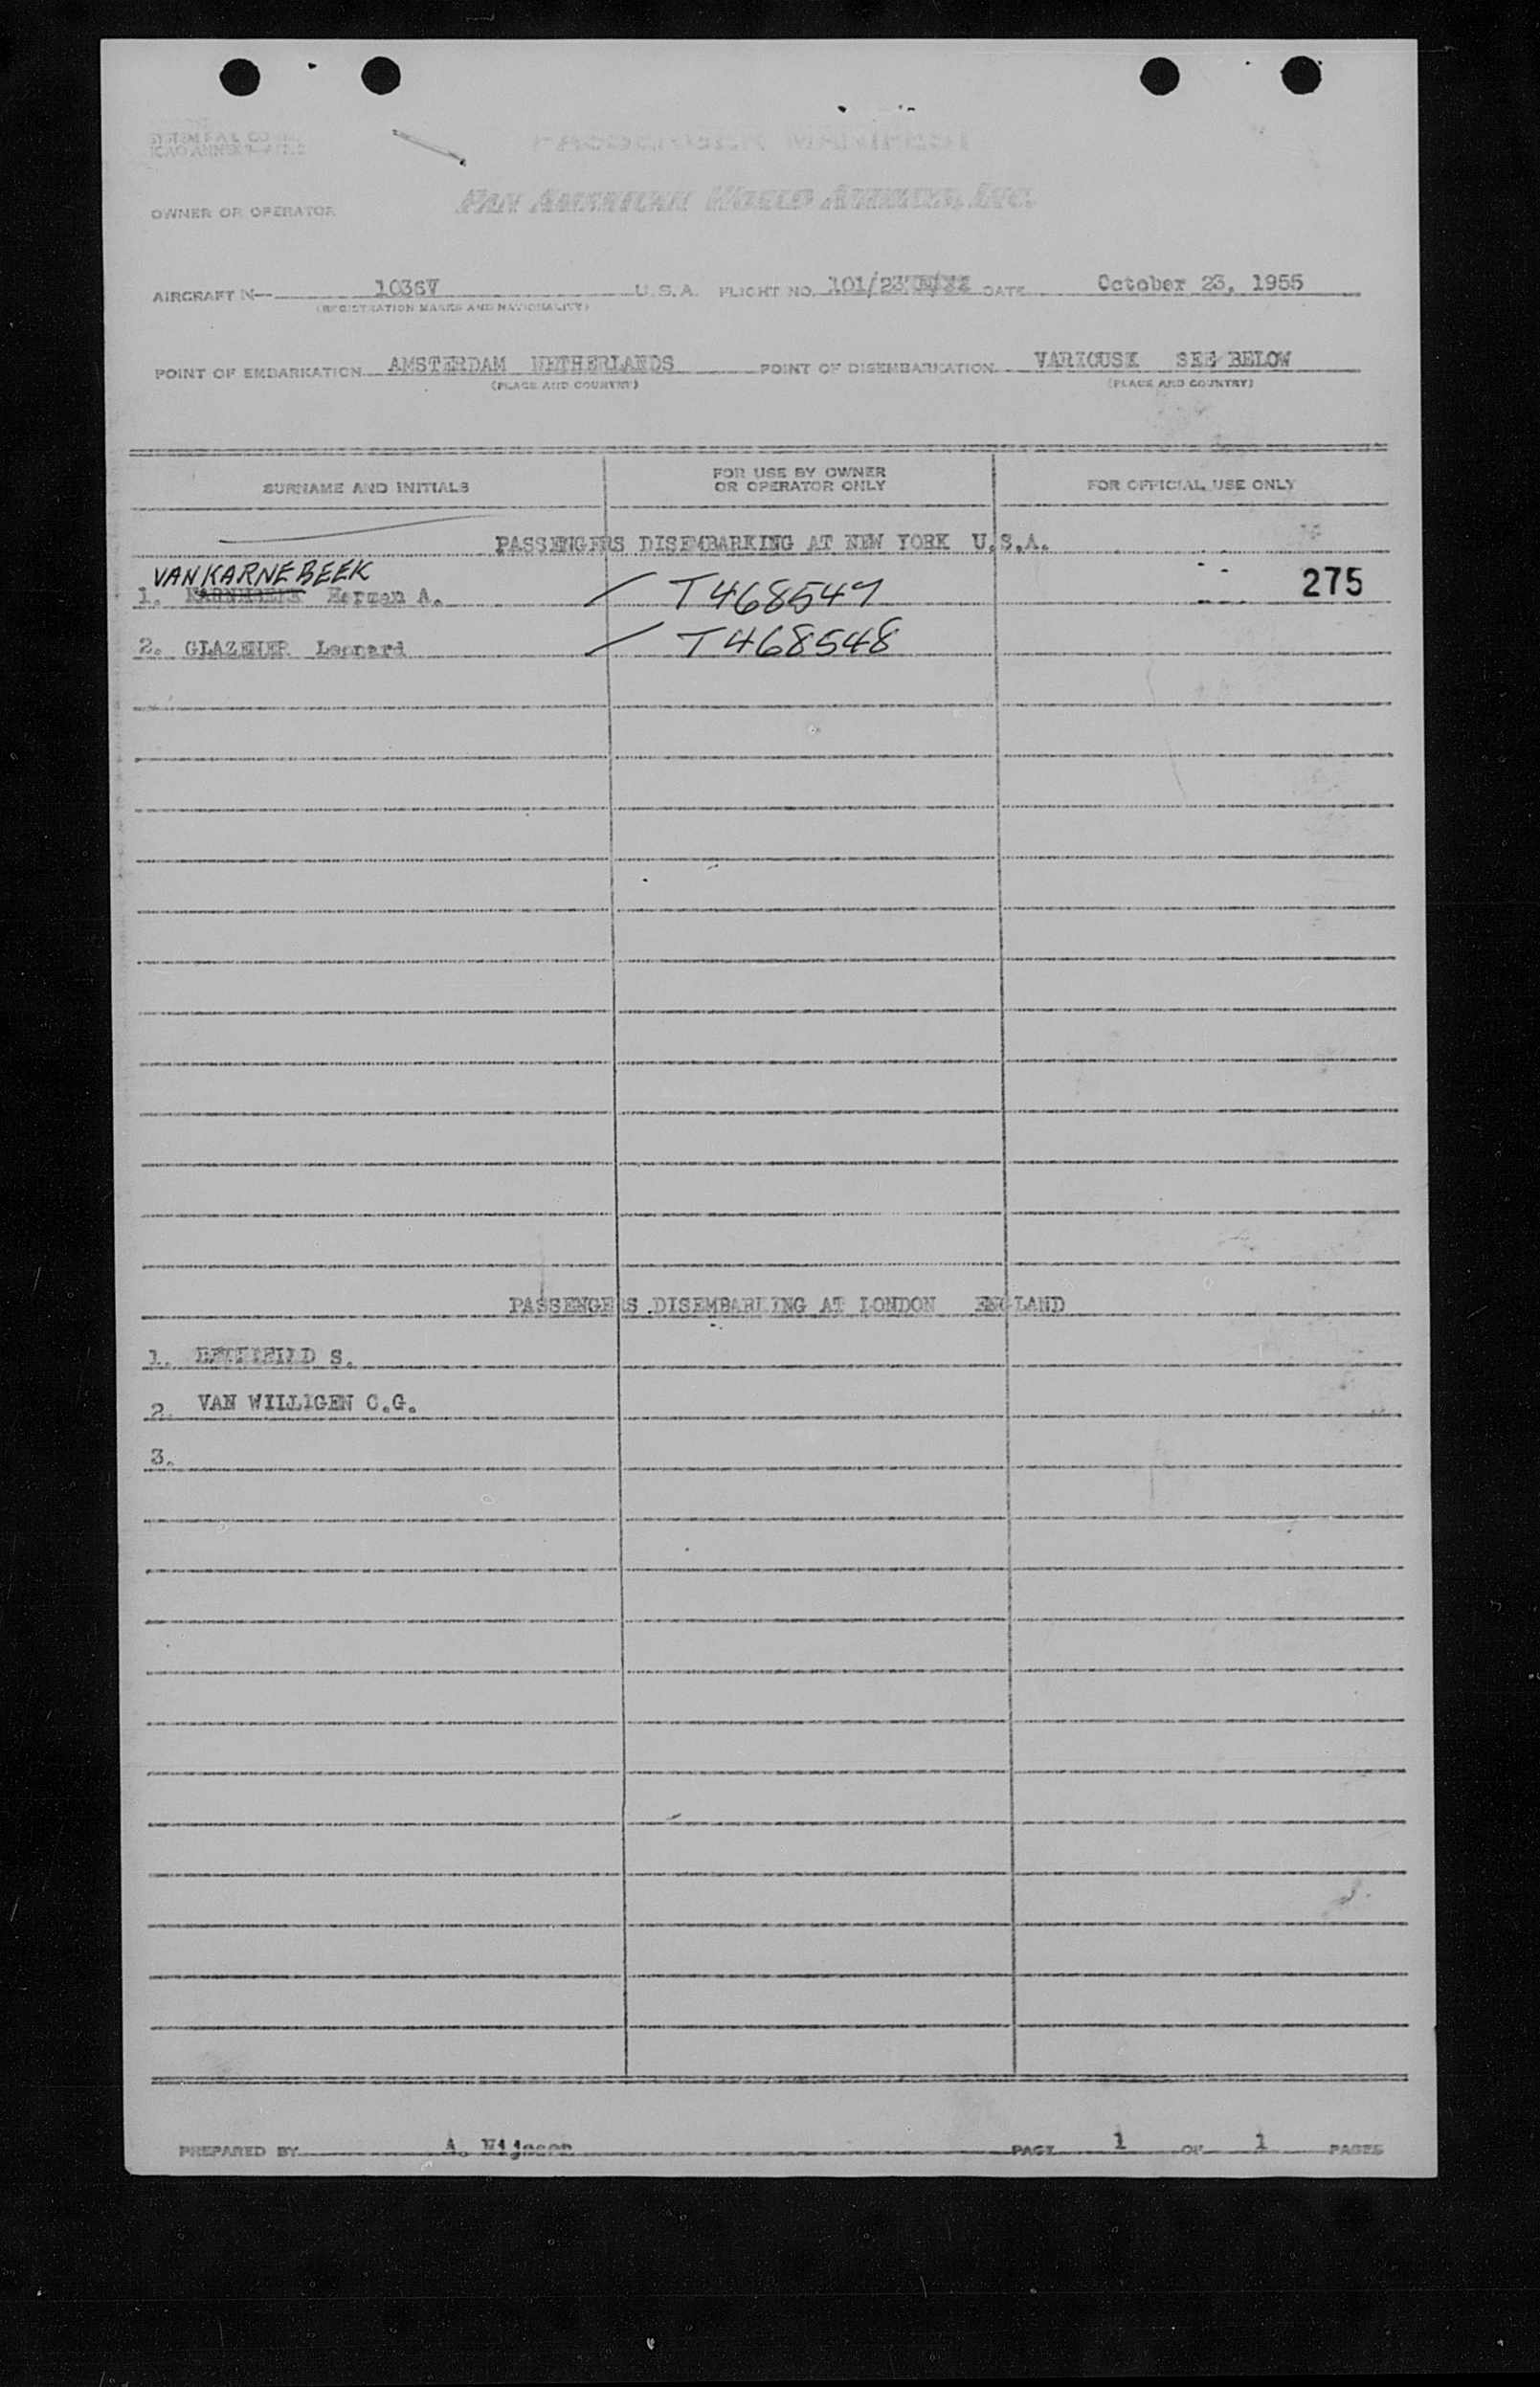 PASSENGER MANIFEST
OWNER OR OPERATOR PAN AMERICAN WORLD AIRWAYS, INC.
AIRCRAFT N 1036V U.S.A. FLIGHT NO. 101/23 DATE October 23, 1955
(REGISTRATION MARKS AND NATIONALITY)
POINT OF EMBARKATION AMSTERDAM NETHERLANDS POINT OF DISEMBARKATION VARIOUSK SEE BELOW
(PLACE AND COUNTRY) (PLACE AND COUNTRY)
SURNAME AND INITIALS FOR USE BY OWNER OR OPERATOR ONLY FOR OFFICIAL USE ONLY
PASSENGERS DISEMBARKING AT NEW YORK U.S.A.
VAN KARNEBEEK
1. Herman A. T468547 275
2. GLAZENER Leonard T468548
PASSENGERS DISEMBARKING AT LONDON ENGLAND
1. S.
2. VAN WILLIGEN C.G.
3.
PREPARED BY A. PAGE 1 OF 1 PAGES